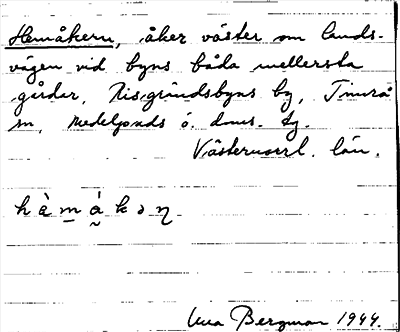 Hemåkern, åker väster om lands-
vägen vid byns båda mellersta
gårdar, Risgrändsbyns by, Timrå
sn, Medelpads ö. doms. tg.
Västernorrl. län.
hὲmákəɳ
Bergman 1944.